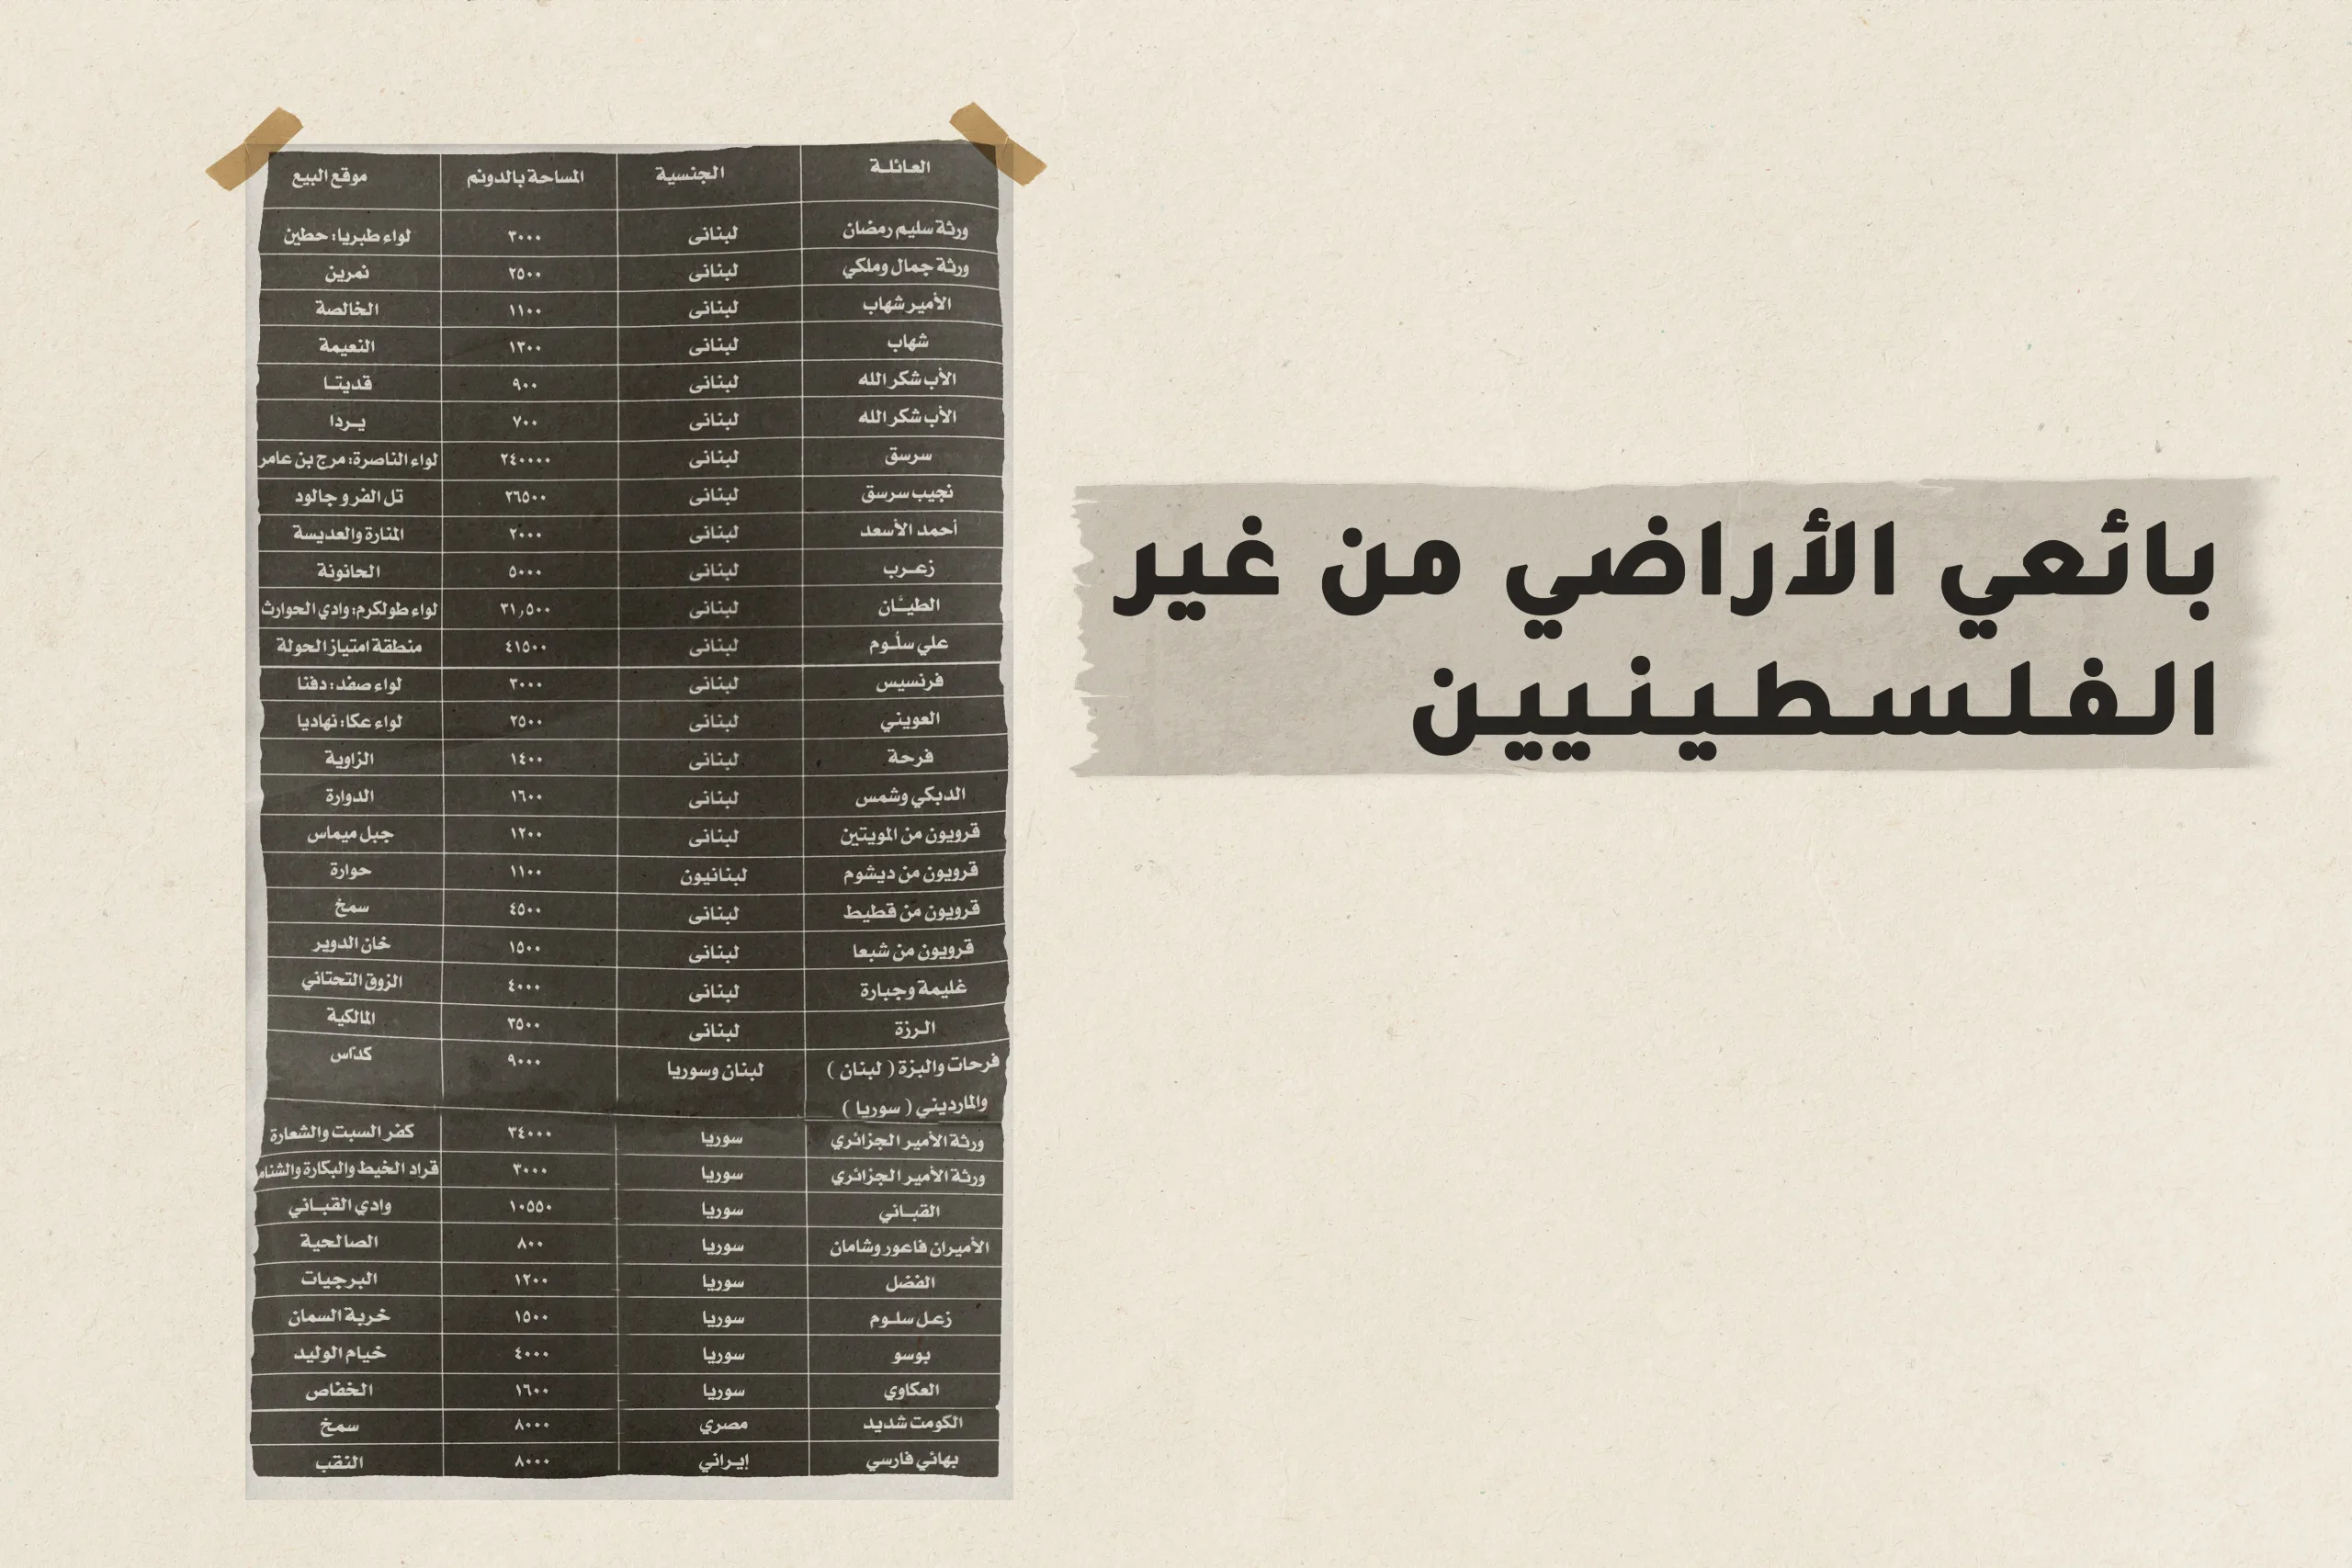 بائعي الأراضي من غير
الفلسطينيين
العائلة الجنسية المساحة بالدونم موقع البيع
ورثة سليم رمضان لبناني ٣٠٠٠ لواء طبريا: حطين
ورثة جمال وملكي لبناني ٢٥٠٠ نمرين
الأمير شهاب لبناني ١١٠٠ الخالصة
شهاب لبناني ١٣٠٠ النعيمة
الأب شكر الله لبناني ٩٠٠ قديتا
الأب شكر الله لبناني ٧٠٠ يردا
سرسق لبناني ٢٤٠٠٠٠ لواء الناصرة: مرج بن عامر
نجيب سرسق لبناني ٢٦٥٠٠ تل الفر و جالود
أحمد الأسعد لبناني ٢٠٠٠ المنارة والعديسة
زعرب لبناني ٥٠٠٠ الحانونة
الطيّان لبناني ٣١,٥٠٠ لواء طولكرم: وادي الحوارث
علي سلّوم لبناني ٤١٥٠٠ منطقة امتياز الحولة
فرنسيس لبناني ٣٠٠٠ لواء صفد: دفنا
العويني لبناني ٢٥٠٠ لواء عكا: نهاديا
فرحة لبناني ١٤٠٠ الزاوية
الدبكي وشمس لبناني ١٦٠٠ الدوارة
قرويون من المويتين لبناني ١٢٠٠ جبل ميماس
قرويون من ديشوم لبنانيون ١١٠٠ حوارة
قرويون من قطيط لبناني ٤٥٠٠ سمخ
قرويون من شبعا لبناني ١٥٠٠ خان الدوير
غليمة وجبارة لبناني ٤٠٠٠ الزوق التحتاني
الرزة لبناني ٣٥٠٠ المالكية
فرحات والبزة ( لبنان ) لبنان وسوريا ٩٠٠٠ كدّاس
والمارديني ( سوريا )
ورثة الأمير الجزائري سوريا ٣٤٠٠٠ كفر السبت والشعارة
ورثة الأمير الجزائري سوريا ٣٠٠٠ قراد الخيط والبكارة والشنام
القباني سوريا ١٠٥٥٠ وادي القباني
الأميران فاعور وشامان سوريا ٨٠٠ الصالحية
الفضل سوريا ١٢٠٠ البرجيات
زعل سلوم سوريا ١٥٠٠ خربة السمان
بوسو سوريا ٤٠٠٠ خيام الوليد
العكاوي سوريا ١٦٠٠ الخفاص
الكومت شديد مصري ٨٠٠٠ سمخ
بهائي فارسي إيراني ٨٠٠٠ النقب